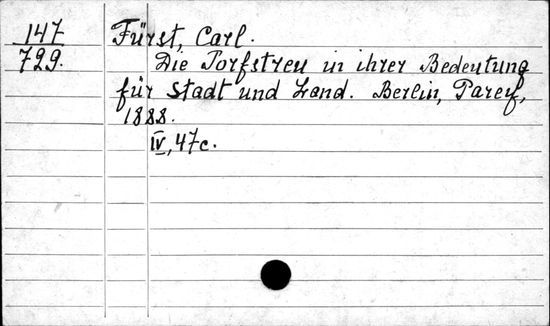 147
729.
Fürst, Carl.
Die Torfstreu in ihrer Bedeutung
für Stadt und Land. Berlin, Parey,
1888.
IV, 47c.